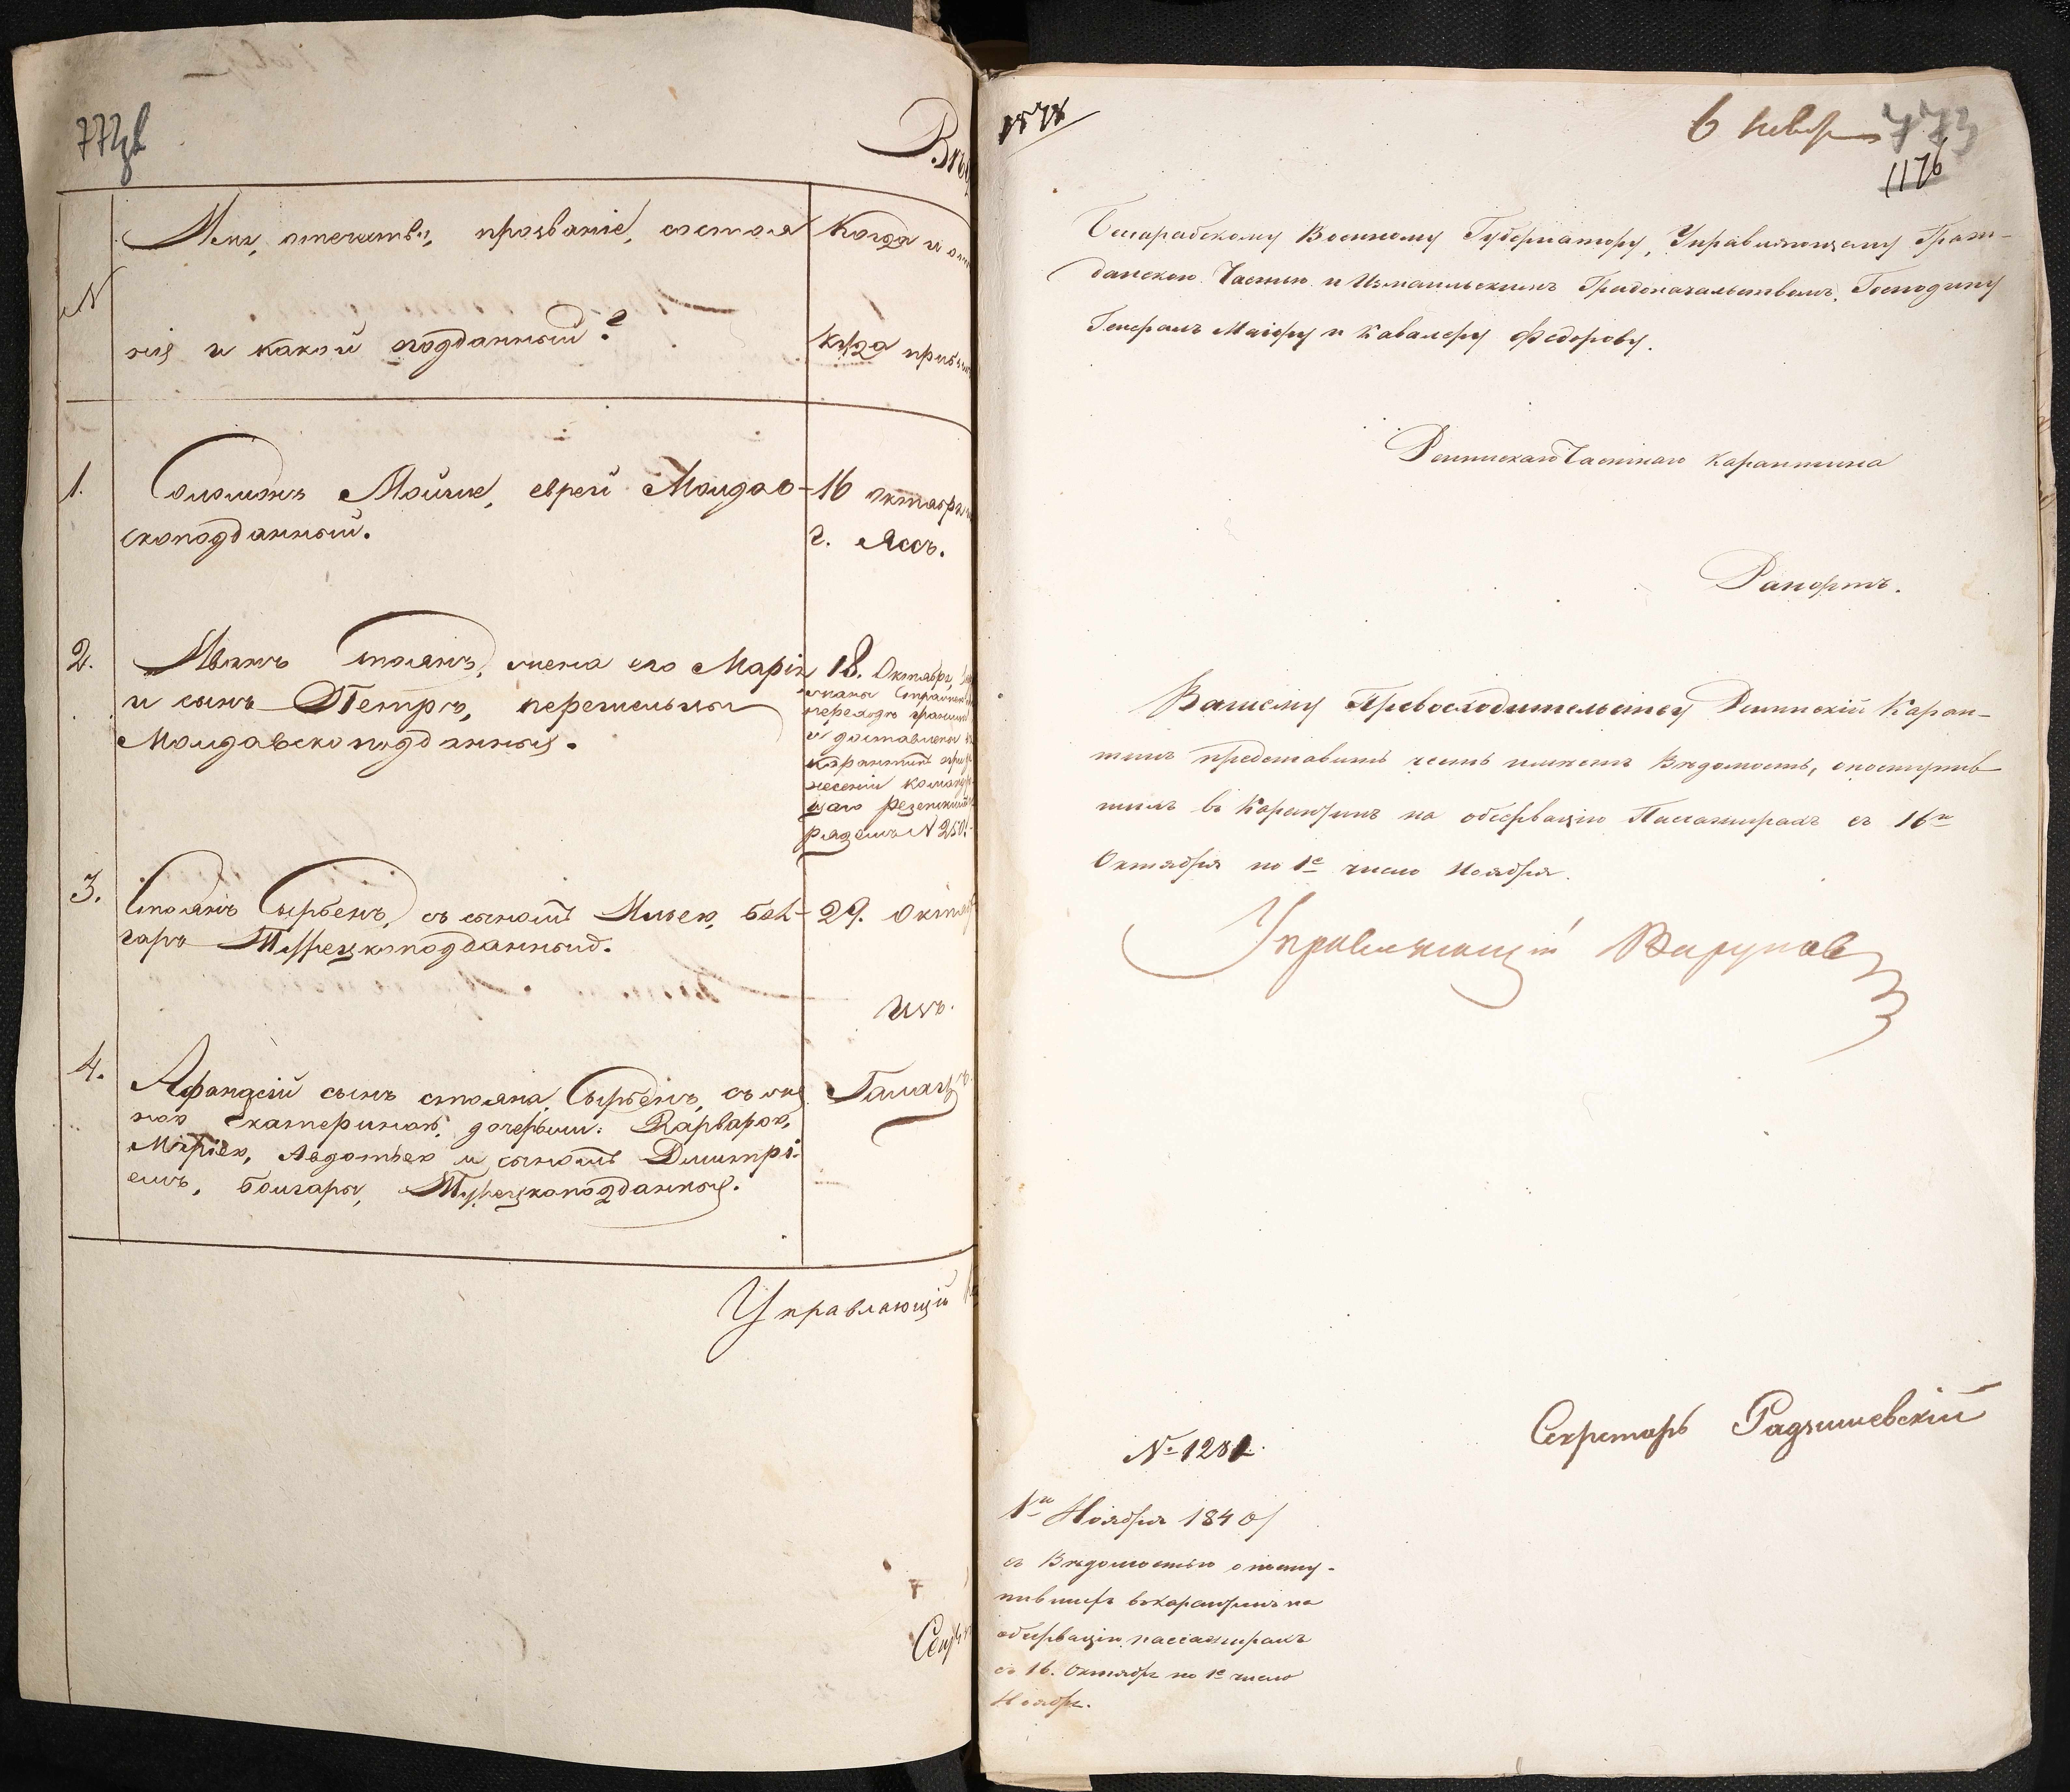 Вѣд
Имя, отечество, прозваніе, состоя
Когда и от
N
нія и какой подданный?
куда прибы
1.
Соломонъ Мойше, еврей Молдав-
скоподданный.
16 октября
г. Яссъ.
2.
Иванъ Стоянъ, жена его Марія
и сынъ Петръ,
Молдавскоподданныя.
18. Октября
переходѣ границы
и доставлены въ
карантинъ при
команду
ющаго
N 250.
3.
Стоянъ Сырбенъ, съ сыномъ Ильею, бол-
гаръ Турецкоподданный.
29. октяб
изъ
4.
Афанасій сынъ стояна Сырбенъ, съ же
ною Екатериною, дочерьми: Варварою,
Маріею, Авдотьею и сыномъ Димитрі-
емъ, болгары, Турецкоподданныя.
Галацъ
Управляющій
Секр
6 ноября 773
1176
Бессарабскому Военному Губернатору, Управляющему Граж-
данскою Частью и Измаильскимъ Градоначальствомъ, Господину
Генералъ Маіору и Кавалеру Федорову.
Ренинскаго Частнаго Карантина
Рапортъ.
Вашему Превосходительству Ренинскій Каран-
тинъ представить честь имѣетъ Вѣдомость, о поступив
шихъ въ Карантинъ на обсервацію Пассажирахъ съ 16го
Октября по 1е число Ноября.
Управляющій
Секретарь Радзишевскій
№ 1281.
1го Ноября 1840/
съ Вѣдомостью о посту-
пившихъ въ карантинъ на
обсервацію пассажирахъ
съ 16. Октября по 1е число
Ноября.